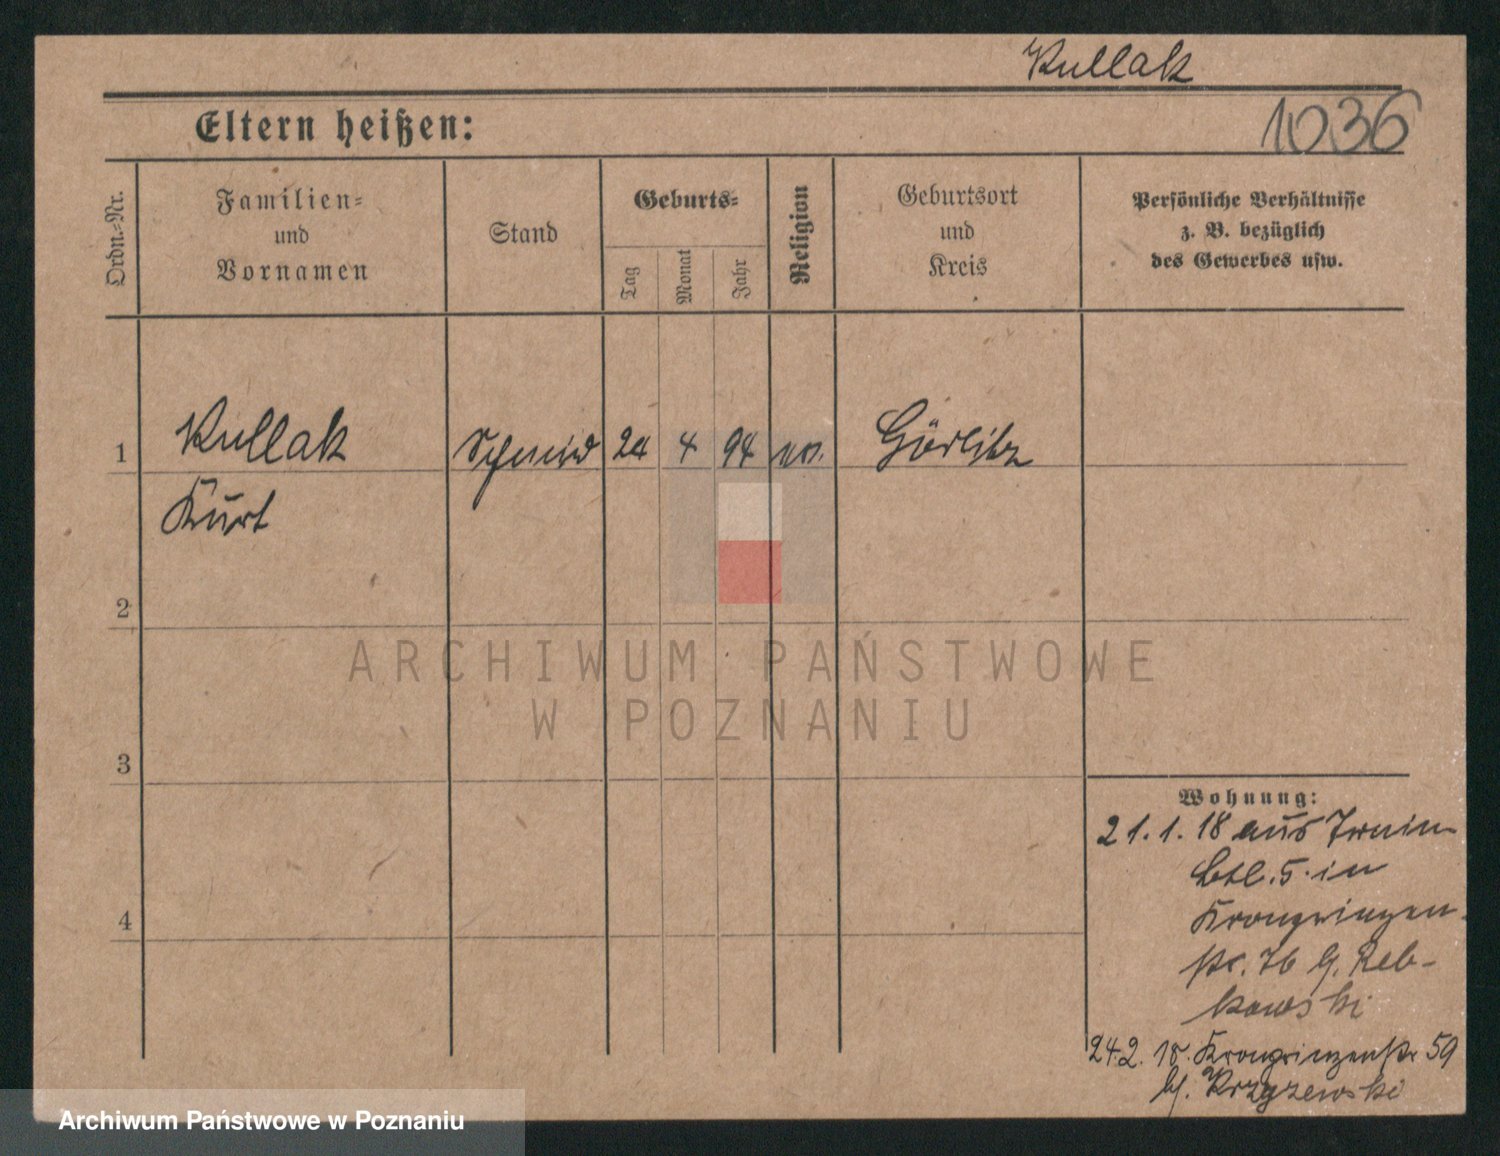 Kullak
Eltern heißen:
1036
Ordn.-Nr.
Familien-
und
Vornamen
Stand
Geburts-
Tag
Monat
Jahr
Religion
Geburtsort
und
Kreis
Persönliche Verhältnisse
z. B. bezüglich
des Gewerbes usw.
1 Kullak Schmied 24 4 94 ev. Görlitz
Kurt
2
3
4
Wohnung:
21.1.18 aus Train
Btl. 5. in
Kronprinzen
str. 76 b. Reb-
kowski
24.2.18. Kronprinzenstr 59
bj. Krzyzewski
ARCHIWUM PAŃSTWOWE
W POZNANIU
Archiwum Państwowe w Poznaniu